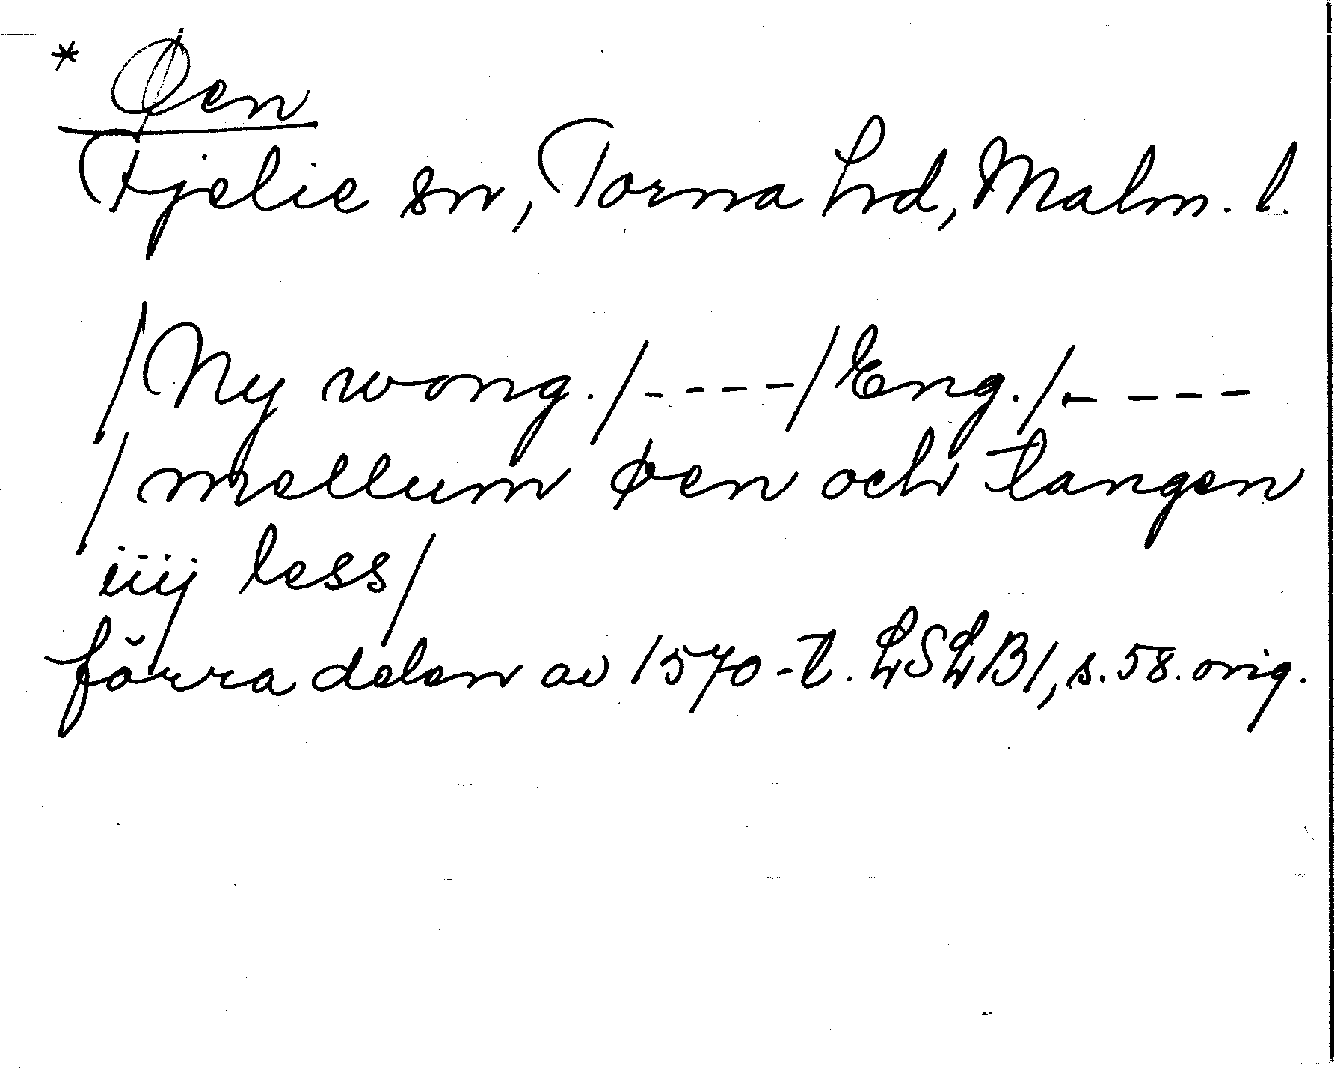 * Øen
Fjelie sn, Torna hd, Malm. l.
/Ny wong./----/Eng./----
/mellum øen och tangen
iiij less/
förra delen av 1570-t. LSLB1, s. 58. orig.